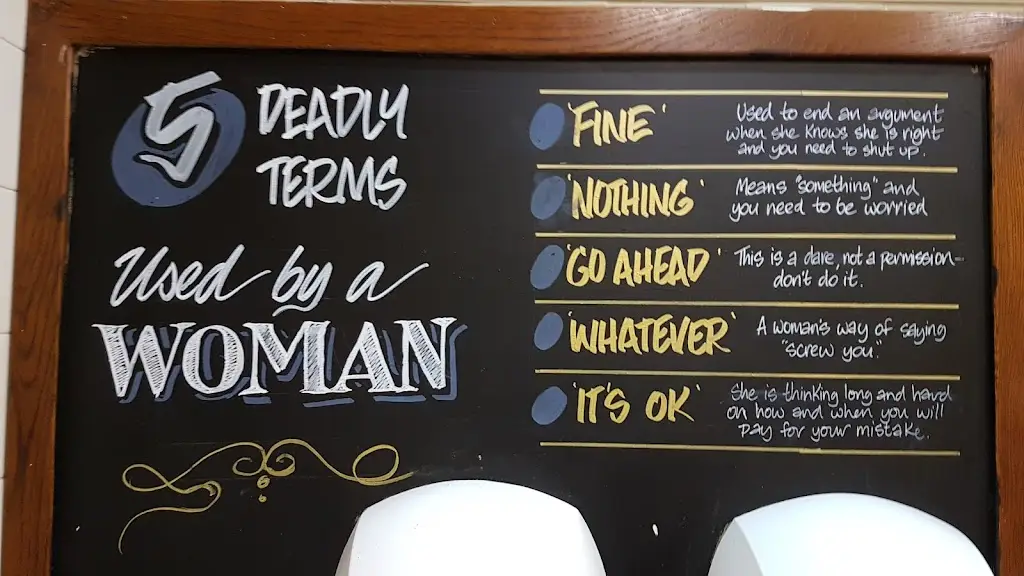 5 DEADLY
TERMS
Used by a
WOMAN
'FINE'
Used to end an argument
when she knows she is right
and you need to shut up.
'NOTHING'
Means "something" and
you need to be worried
'GO AHEAD'
This is a dare, not a permission-
don't do it.
'WHATEVER'
A woman's way of saying
"screw you."
'IT'S OK'
She is thinking long and hard
on how and when you will
pay for your mistake.